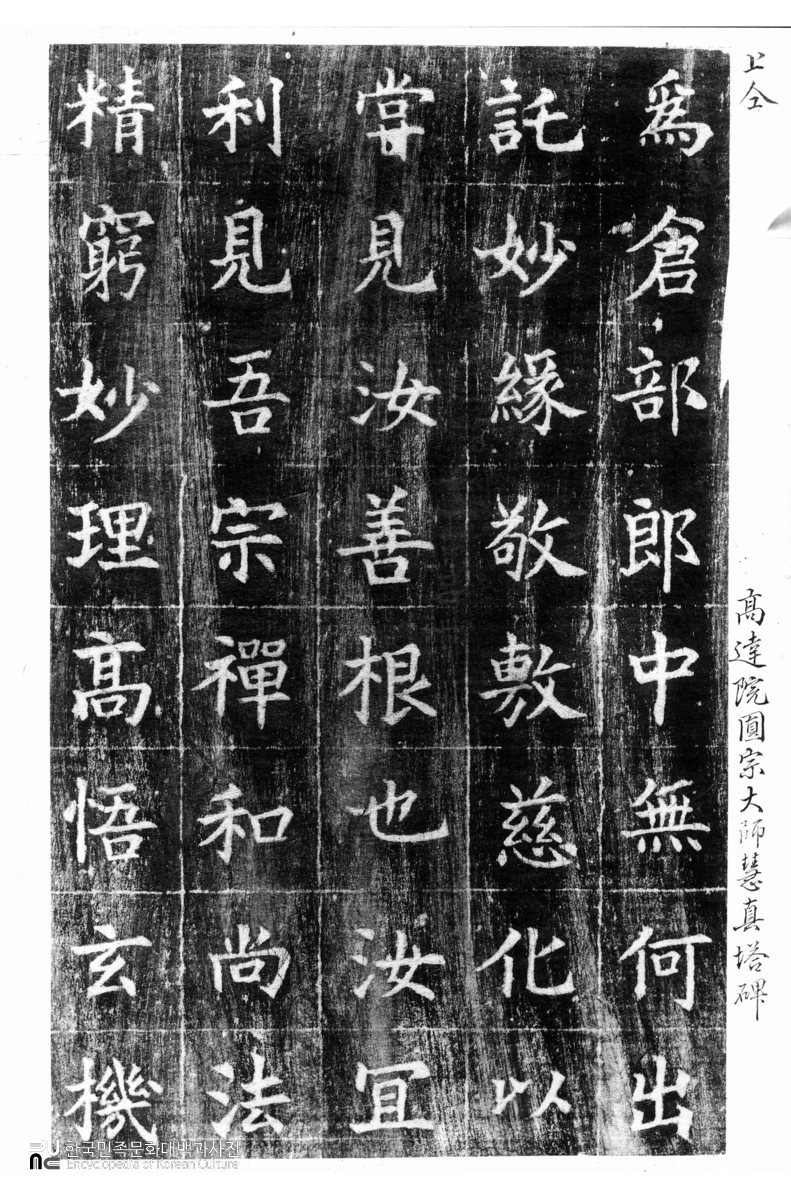 上仝
高達院圓宗大師慧真塔碑
爲倉部郎中無何出
託妙緣敬敷慈化以
嘗見汝善根也汝冝
利見吾宗禪和尚法
精窮妙理高悟玄機
한국민족문화대백과사전
Encyclopedia of Korean Culture